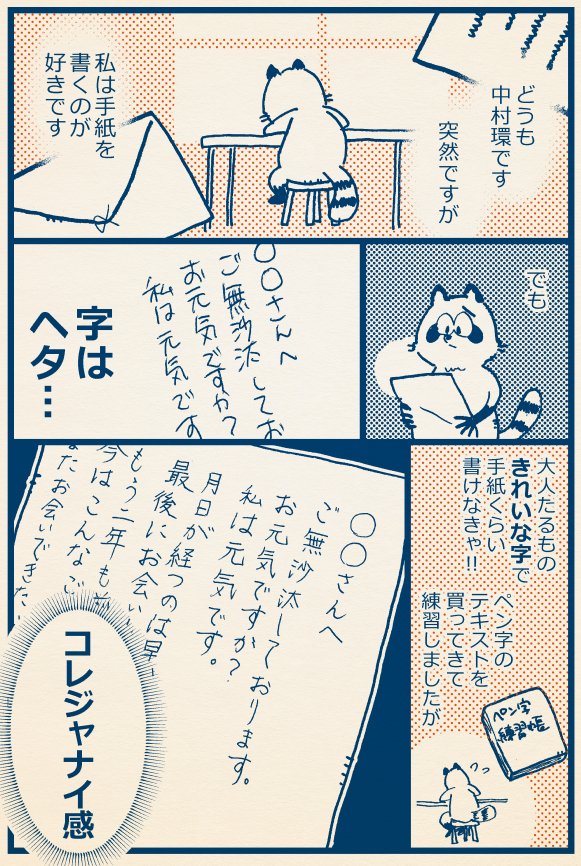 どうも
中村環です
突然ですが
私は手紙を
書くのが
好きです
でも
〇〇さんへ
ご無沙汰してお
お元気ですか?
私は元気です
字は
ヘタ…
大人たるもの
きれいな字で
手紙くらい
書けなきゃ!!
ペン字の
テキストを
買ってきて
練習しましたが
ペン字
練習帳
〇〇さんへ
ご無沙汰しております。
お元気ですか?
私は元気です。
月日が経つのは早い
最後にお会い
もう二年も
今はこんなご
またお会いできた
コレジャナイ感